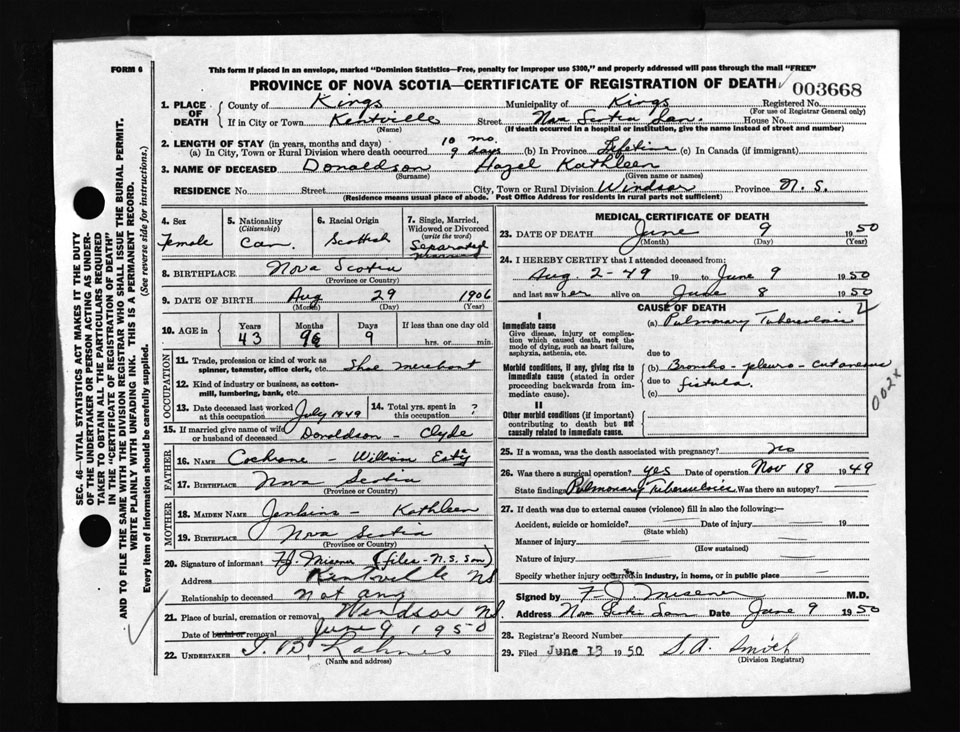 FORM 6
This form if placed in an envelope, marked "Dominion Statistics—Free, penalty for improper use $300," and properly addressed will pass through the mail "FREE"
PROVINCE OF NOVA SCOTIA—CERTIFICATE OF REGISTRATION OF DEATH 003668
1. PLACE OF DEATH County of Kings Municipality of Kings Registered No.
(For use of Registrar General only)
If in City or Town Kentville Street Nova Scotia San. House No.
(Name) (If death occurred in a hospital or institution, give the name instead of street and number)
2. LENGTH OF STAY (in years, months and days) 10 mo.
(a) In City, Town or Rural Division where death occurred 9 days (b) In Province Lifetime (c) In Canada (if immigrant)
3. NAME OF DECEASED Donaldson Hazel Kathleen
(Surname) (Given name or names)
RESIDENCE No. Street City, Town or Rural Division Windsor Province N. S.
(Residence means usual place of abode. Post Office Address for residents in rural parts not sufficient)
SEC. 46—VITAL STATISTICS ACT MAKES IT THE DUTY
OF THE UNDERTAKER OR PERSON ACTING AS UNDER-
TAKER TO OBTAIN ALL THE PARTICULARS REQUIRED
IN THE "CERTIFICATE OF REGISTRATION OF DEATH"
AND TO FILE THE SAME WITH THE DIVISION REGISTRAR WHO SHALL ISSUE THE BURIAL PERMIT.
WRITE PLAINLY WITH UNFADING INK. THIS IS A PERMANENT RECORD.
Every item of information should be carefully supplied. (See reverse side for instructions.)
4. Sex
Female
5. Nationality
(Citizenship)
Can.
6. Racial Origin
Scottish
7. Single, Married,
Widowed or Divorced
(write the word)
Separated
8. BIRTHPLACE Nova Scotia
(Province or Country)
9. DATE OF BIRTH Aug 29 1906
(Month) (Day) (Year)
10. AGE in Years Months Days If less than one day old
43 9 9 hrs. or min.
OCCUPATION
11. Trade, profession or kind of work as
spinner, teamster, office clerk, etc. Shoe merchant
12. Kind of industry or business, as cotton-
mill, lumbering, bank, etc.
13. Date deceased last worked
at this occupation July 1949
14. Total yrs. spent in
this occupation ?
15. If married give name of wife
or husband of deceased Donaldson - Clyde
FATHER
16. NAME Cochrane - William
17. BIRTHPLACE Nova Scotia
MOTHER
18. MAIDEN NAME Jenkins - Kathleen
19. BIRTHPLACE Nova Scotia
(Province or Country)
20. Signature of informant F.J. Misener (files - N.S. San)
Address Kentville NS
Relationship to deceased not any
21. Place of burial, cremation or removal Windsor N.S.
Date of burial or removal June 9 1950
22. UNDERTAKER
(Name and address)
MEDICAL CERTIFICATE OF DEATH
23. DATE OF DEATH June 9 1950
(Month) (Day) (Year)
24. I HEREBY CERTIFY that I attended deceased from:
Aug. 2 - 49 19 to June 9 1950
and last saw her alive on June 8 1950
CAUSE OF DEATH
I
Immediate cause
Give disease, injury or complica-
tion which caused death, not the
mode of dying, such as heart failure,
asphyxia, asthenia, etc.
(a) Pulmonary Tuberculosis 2
due to
Morbid conditions, if any, giving rise to
immediate cause (stated in order
proceeding backwards from im-
mediate cause).
(b) Broncho - pleuro - cutaneous
due to fistula.
(c)
002x
II
Other morbid conditions (if important)
contributing to death but not
causally related to immediate cause.
25. If a woman, was the death associated with pregnancy? no
26. Was there a surgical operation? yes Date of operation Nov 18 1949
State finding Pulmonary Tuberculosis Was there an autopsy?
27. If death was due to external causes (violence) fill in also the following:—
Accident, suicide or homicide? Date of injury 19
(State which)
Manner of injury
(How sustained)
Nature of injury
Specify whether injury occurred in industry, in home, or in public place
Signed by F. J. Misener M.D.
Address Nova Scotia San Date June 9 1950
28. Registrar's Record Number
29. Filed June 13 1950 S.A. Smith
(Division Registrar)